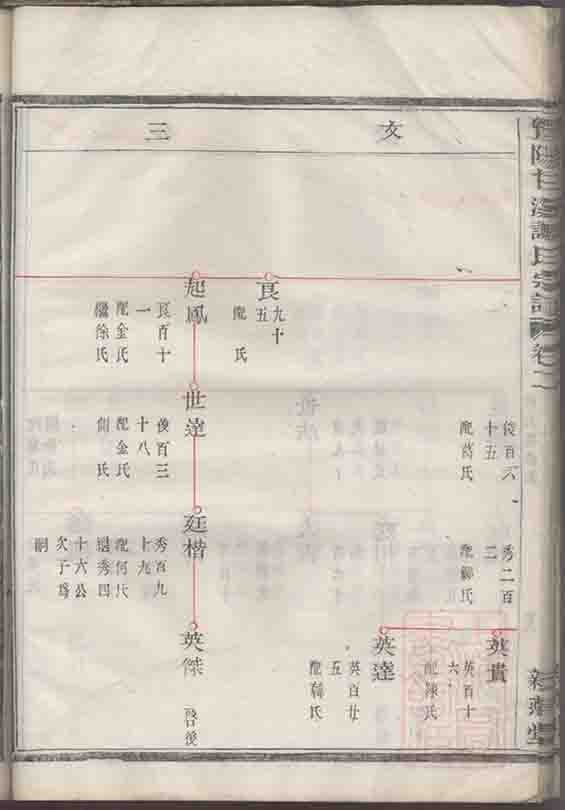 陽
謝氏宗譜
卷二
文
三
俊百六
十五
配葛氏
秀二百
二
配柳氏
英貴
英百十
六
配陳氏
英達
英百廿
五
配韓氏
良
九十
五
配 氏
起鳳
良百十
一
配金氏
繼徐氏
世達
俊百三
十八
配金氏
側 氏
廷楷
秀百九
十九
配何氏
選秀四
十六公
次子為
嗣
英傑
啓後
堂